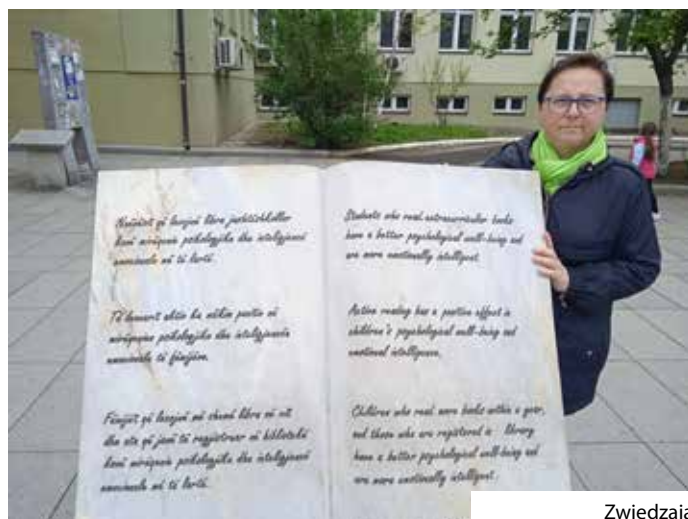 Nxënësit që lexojnë libra jashtëshkollor
kanë mirëqenie psikologjike dhe inteligjencë
emocionale më të lartë.
Të lexuarit aktiv ka ndikim pozitiv në
mirëqenien psikologjike dhe inteligjencën
emocionale të fëmijëve.
Fëmijët që lexojnë më shumë libra në vit
dhe ata që janë të regjistruar në bibliotekë
kanë mirëqenie psikologjike dhe inteligjencë
emocionale më të lartë.
Students who read extracurricular books
have a better psychological well-being and
are more emotionally intelligent.
Active reading has a positive effect in
children's psychological well-being and
emotional intelligence.
Children who read more books within a year,
and those who are registered in library
have a better psychological well-being and
are more emotionally intelligent.
Zwiedzają